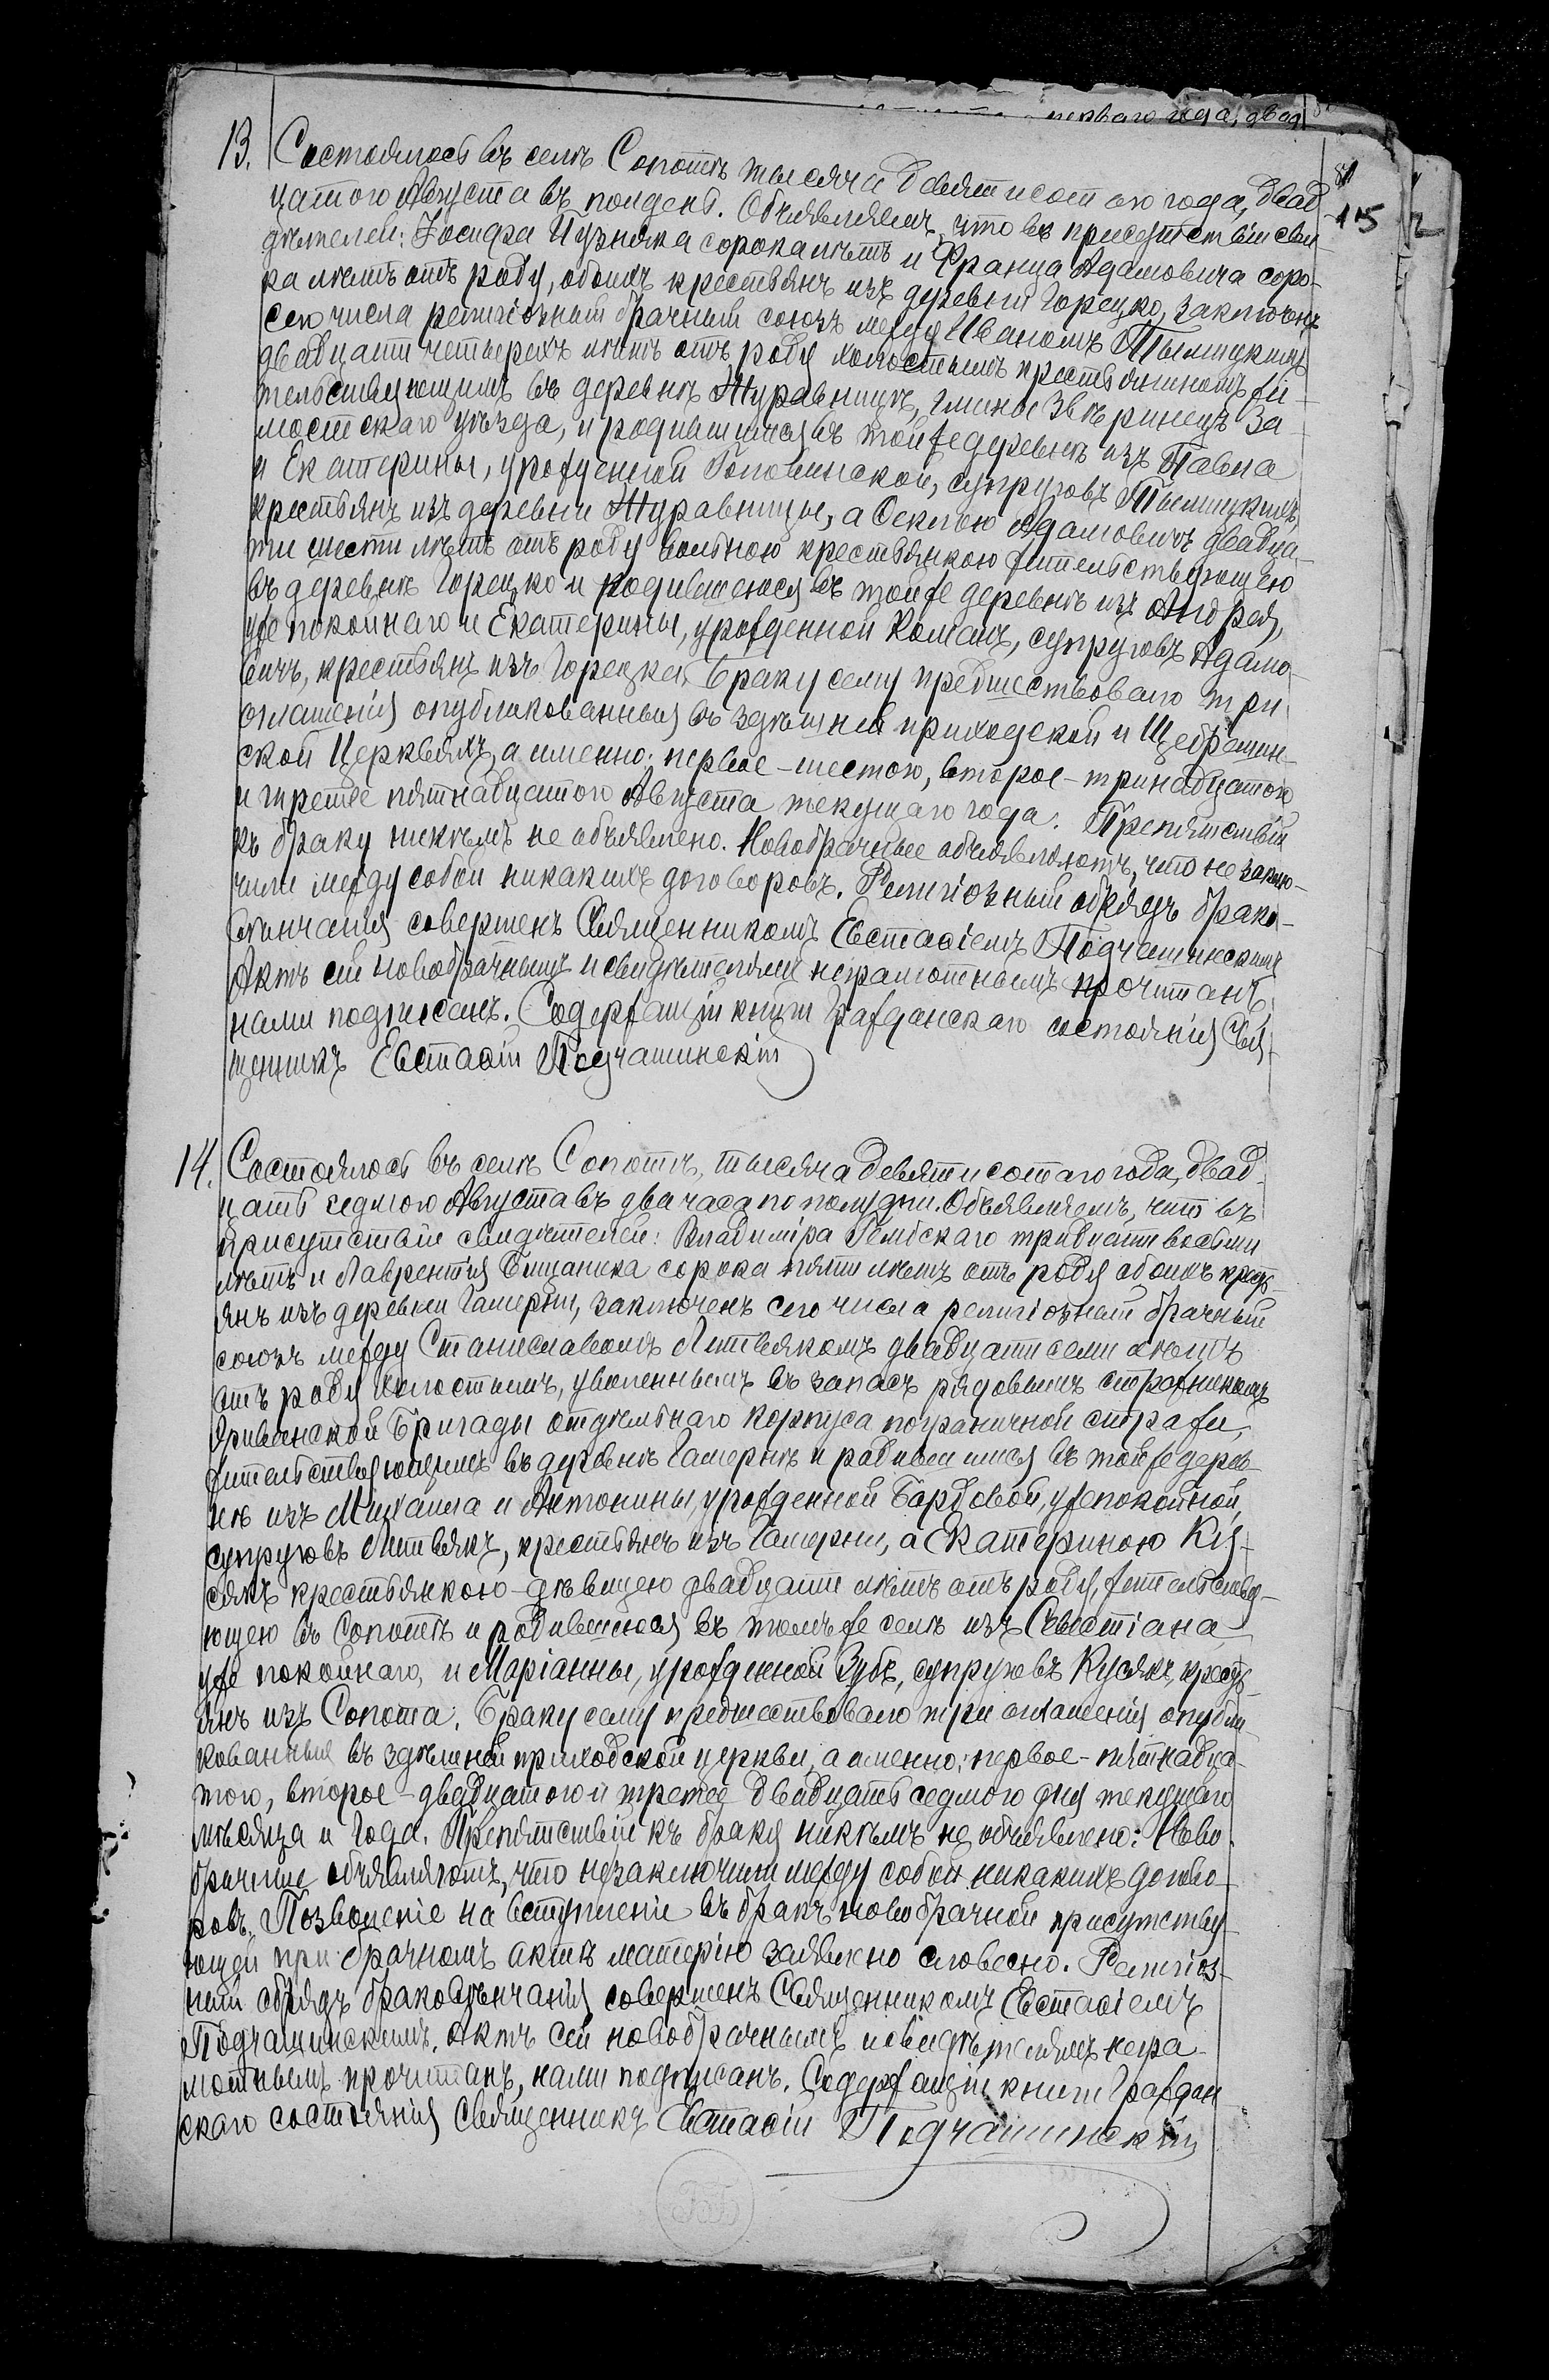 перваго года, двад
13. Состоялось въ селѣ Сопотѣ тысяча девятисотаго года, двад
цатого Августа въ полдень. Объявляемъ, что въ присутствіи сви
дѣтелей: Іосифа сорока лѣтъ и Франца Адамовича соро-
ка лѣтъ отъ роду, обоихъ крестьянъ изъ деревни Горецко, заключенъ
сего числа религіозный брачный союзъ между Иваномъ
двадцати четырехъ лѣтъ отъ роду холостымъ крестьяниномъ жи-
тельствующимъ въ деревнѣ Журавницѣ, гмины Звѣринецъ За-
мостскаго уѣзда, и родившимся въ той же деревнѣ изъ Павла
и Екатерины, урожденной Головинской, супруговъ
крестьянъ изъ деревни Журавницы, а Феклею Адамовичъ двадца-
ти шести лѣтъ отъ роду вольною крестьянкою жительствующею
въ деревнѣ Горецко и родившеюся въ той же деревнѣ изъ Андрея,
уже покойнаго и Екатерины, урожденной супруговъ Адамо-
вичъ, крестьянъ изъ Горецка. Браку сему предшествовало три
оглашенія опубликованныя въ здѣшней приходской и Щебрешин-
ской Церквяхъ, а именно: первое - шестого, второе - тринадцатого
и третье пятнадцатого Августа текущаго года. Препятствій
къ браку никѣмъ не объявлено. Новобрачные объявляютъ, что не заклю-
чили между собой никакихъ договоровъ. Религіозный обрядъ брако-
вѣнчанія совершенъ Священникомъ Евстафіемъ Подчашинскимъ
Актъ сей новобрачнымъ и свидѣтелямъ неграмотнымъ прочитанъ,
нами подписанъ. Содержащій книги Гражданскаго состоянія Свя-
щенникъ Евстафій Подчашинскій
14. Состоялось въ селѣ Сопотѣ, тысяча девятисотаго года, двад
цать седьмого Августа въ два часа по полудни. Объявляемъ, что въ
присутствіи свидѣтелей: Владиміра тридцати восьми
лѣтъ и Лаврентія сорока пяти лѣтъ отъ роду обоихъ кресть-
янъ изъ деревни Гамерни, заключенъ сего числа религіозный брачный
союзъ между Станиславомъ Литвякомъ двадцати семи лѣтъ
отъ роду холостымъ, уволеннымъ въ запасъ рядовымъ стражникомъ
Эриванской Бригады отдѣльнаго Корпуса пограничной стражи,
жительствующимъ въ деревнѣ Гамернѣ и родившимся въ той же дерев-
нѣ изъ Михаила и Антонины, урожденной Бардовой, уже покойной,
супруговъ Литвякъ, крестьянъ изъ Гамерни, а Екатериною Ку-
сякъ крестьянкою - дѣвицею двадцати лѣтъ отъ роду, жительству-
ющею въ Сопотѣ и родившеюся въ томъ же селѣ изъ Севастіана
уже покойнаго, и Маріанны, урожденной Зубъ, супруговъ Кусякъ, кресть-
янъ изъ Сопота. Браку сему предшествовало три оглашенія опубли-
кованныя въ здѣшней приходской церкви, а именно: первое - пятнадца-
того, второе - двадцатого и третье двадцать седьмого дня текущаго
мѣсяца и года. Препятствій къ браку никѣмъ не объявлено: Ново-
брачные объявляютъ, что не заключили между собой никакихъ догово-
ровъ. Позволеніе на вступленіе въ бракъ новобрачной присутству-
ющей при брачномъ актѣ матерію заявлено словесно. Религіоз-
ный обрядъ браковѣнчанія совершенъ Священникомъ Евстафіемъ
Подчашинскимъ. Актъ сей новобрачнымъ и свидѣтелямъ негра-
мотнымъ прочитанъ, нами подписанъ. Содержащій книги Граждан
скаго состоянія Священникъ Евстафій Подчашинскій